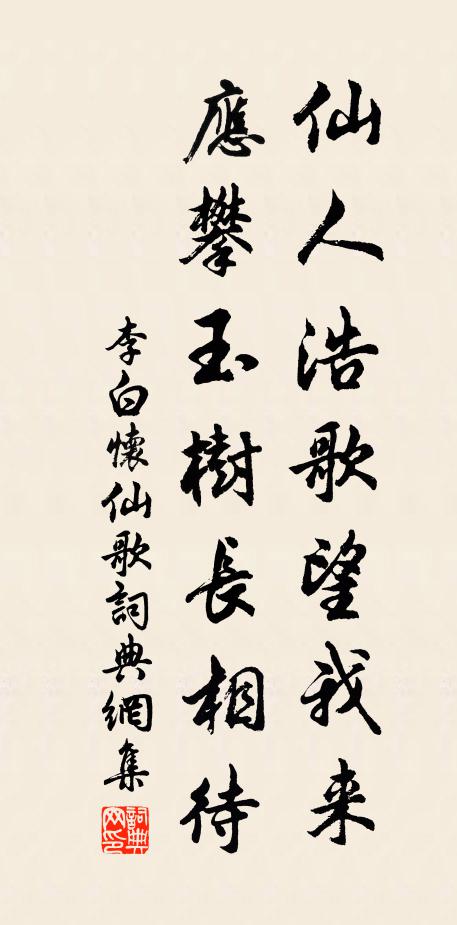 仙人浩歌望我来
應攀玉樹長相待
李白懷仙歌詞典網集
詞典网印